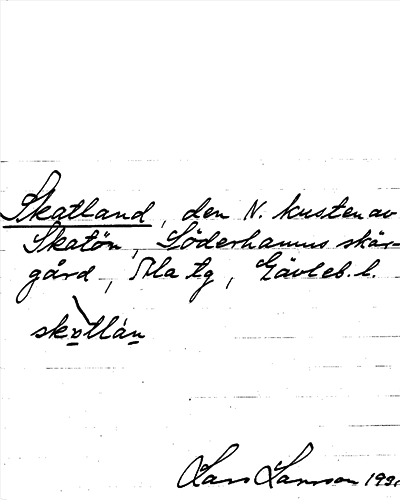 Skatland, den N. kusten av
Skatön, Söderhamns skär-
gård, Ala tg, Gävleb. l.
skotlán
Lars Larsson